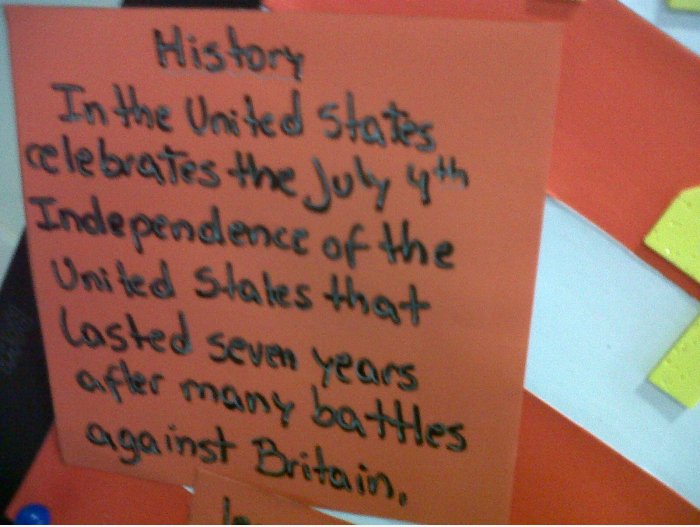 History
In the United States
celebrates the July 4th
Independence of the
United States that
lasted seven years
after many battles
against Britain.